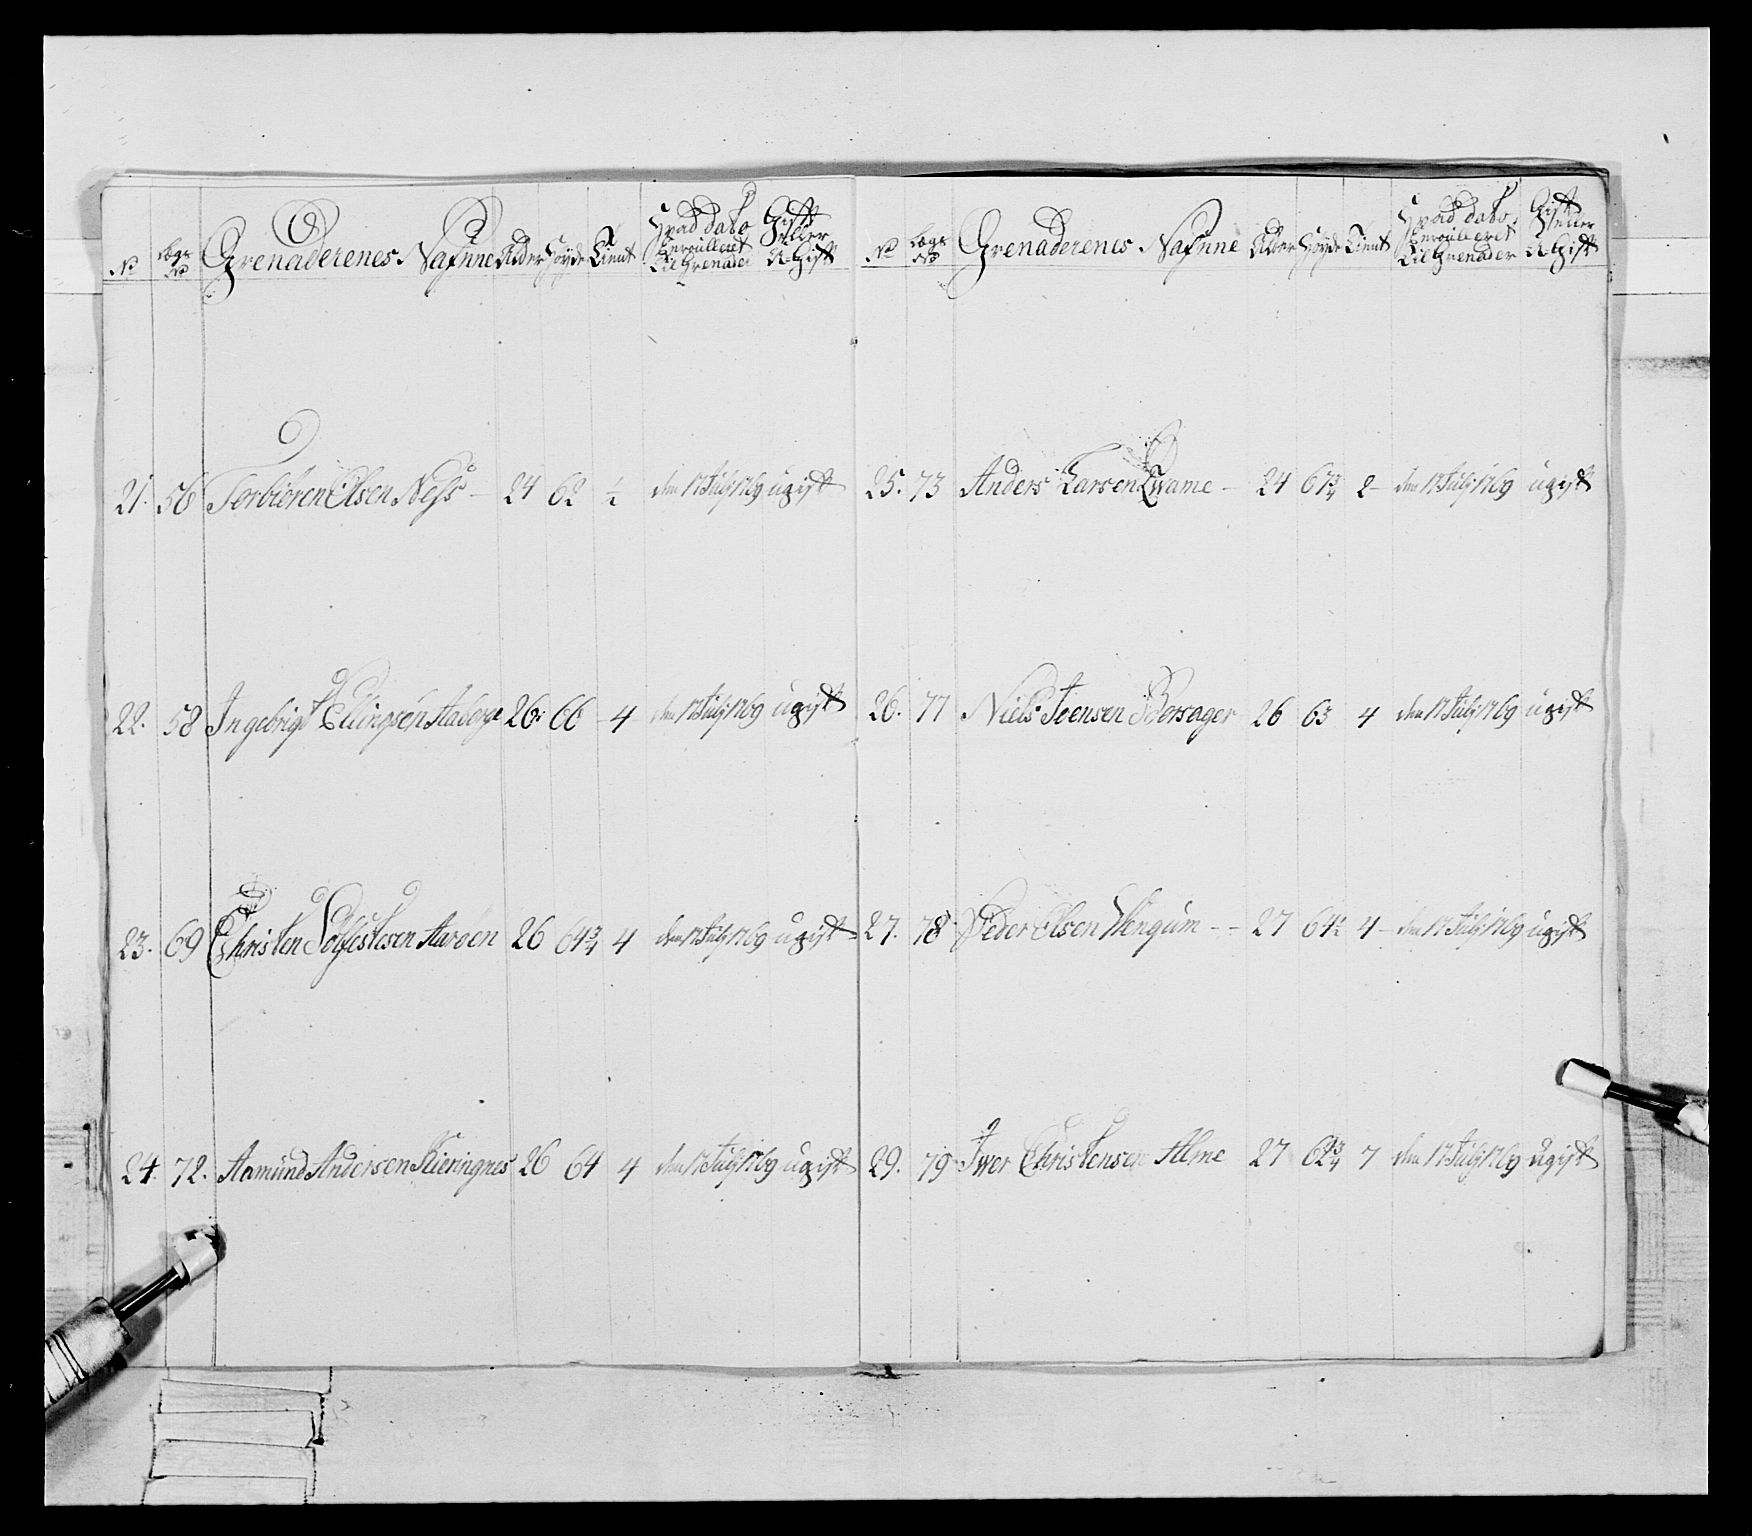 No Lægs No Grenaderenes Nafnne Alder Høyde Tient Hvad dato Enroulleret til Grenader Gift Heller U-Gift
21. 56 Torbiören Olsen Ness - 24 62 ½ den 17 Julj 1769 ugift
22. 58 Ingebrigt Ellingsen Aaberge 26 66 - 4 den 17 Julj 1769 ugift
23. 69 Christen Sollfestesen Aarøen 26 64¾ 4 den 17 Julj 1769 ugift
24. 72. Aamund Andersen Skieringnes 26 64 4 den 17 Julj 1769 ugift
No Lægs No Grenaderenes Nafnne Alder Høyde Tient Hvad dato Enroulleret til Grenader Gift Heller U-Gift
25. 73 Anders Larsen Qvame - 24 61¾ 2 - den 17 Julj 1769 ugift
26. 77 Niels Joensen 26 63 4 den 17 Julj 1769 ugift
27. 78 Peder Olsen Wengum - - 27 64½ 4 - den 17 Julj 1769 ugift
29. 79 Iwer Christensen Alme 27 62¾ 7 den 17 Julj 1769 ugift